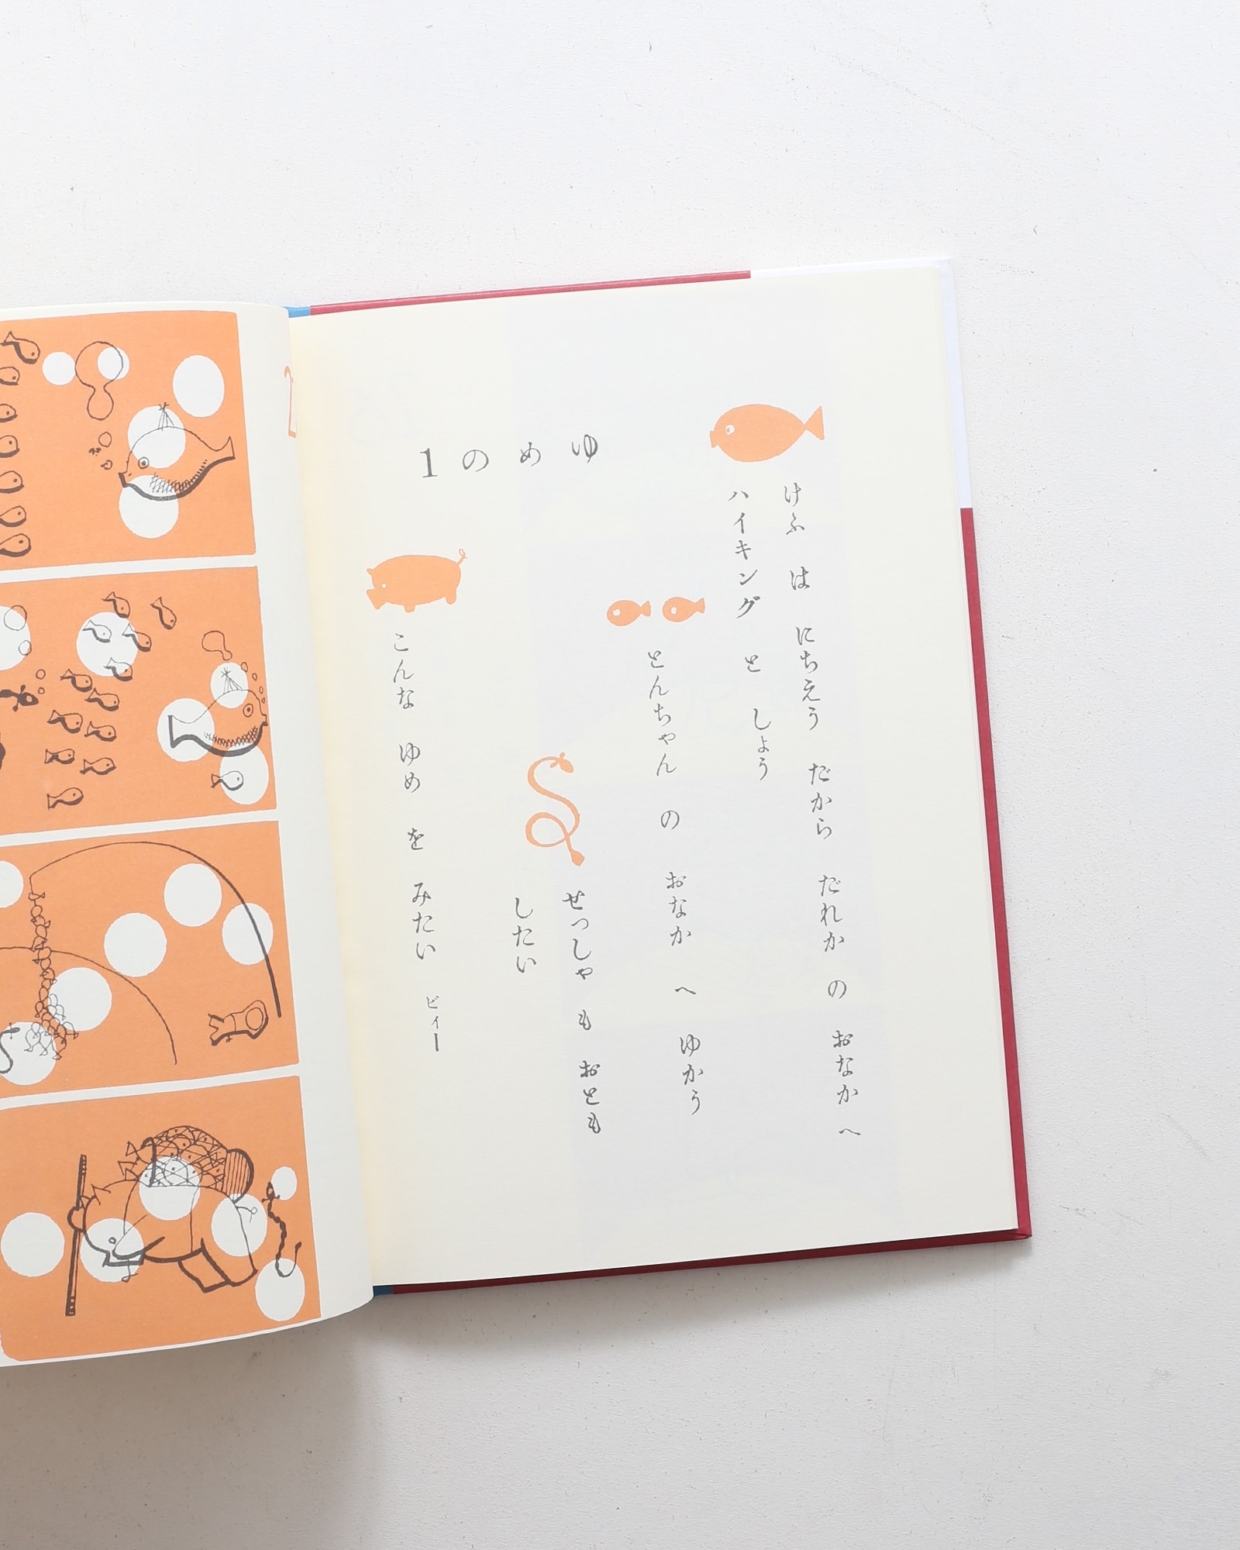 ゆめの1
けふ は にちえう だから だれか の おなか へ
ハイキング と しょう
とんちゃん の おなか へ ゆかう
せっしゃ も おとも
したい
こんな ゆめ を みたい ビィー